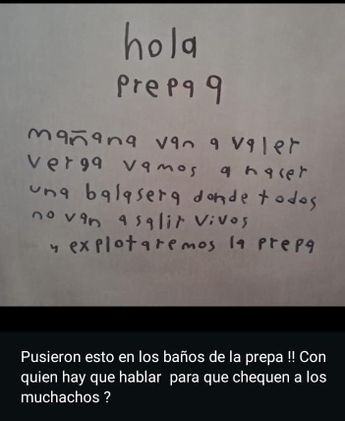 hola
prepa 9
mañana van a valer
verga vamos a hacer
una balasera donde todos
no van a salir vivos
y explotaremos la prepa
Pusieron esto en los baños de la prepa !! Con
quien hay que hablar para que chequen a los
muchachos ?